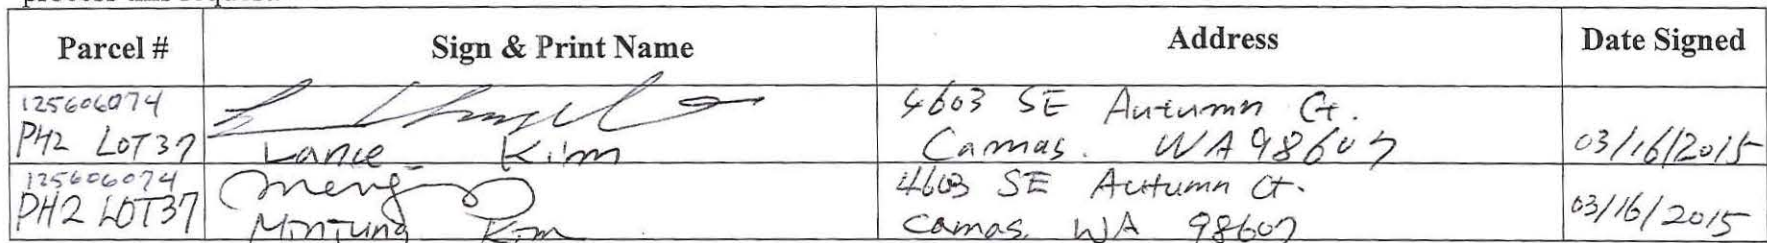 Parcel # Sign & Print Name Address Date Signed
125606074
PH2 LOT37
Lance Kim
4603 SE Autumn Ct.
Camas. WA 98607
03/16/2015
125606074
PH2 LOT37
Minjung Kim
4603 SE Autumn Ct.
Camas, WA 98607
03/16/2015